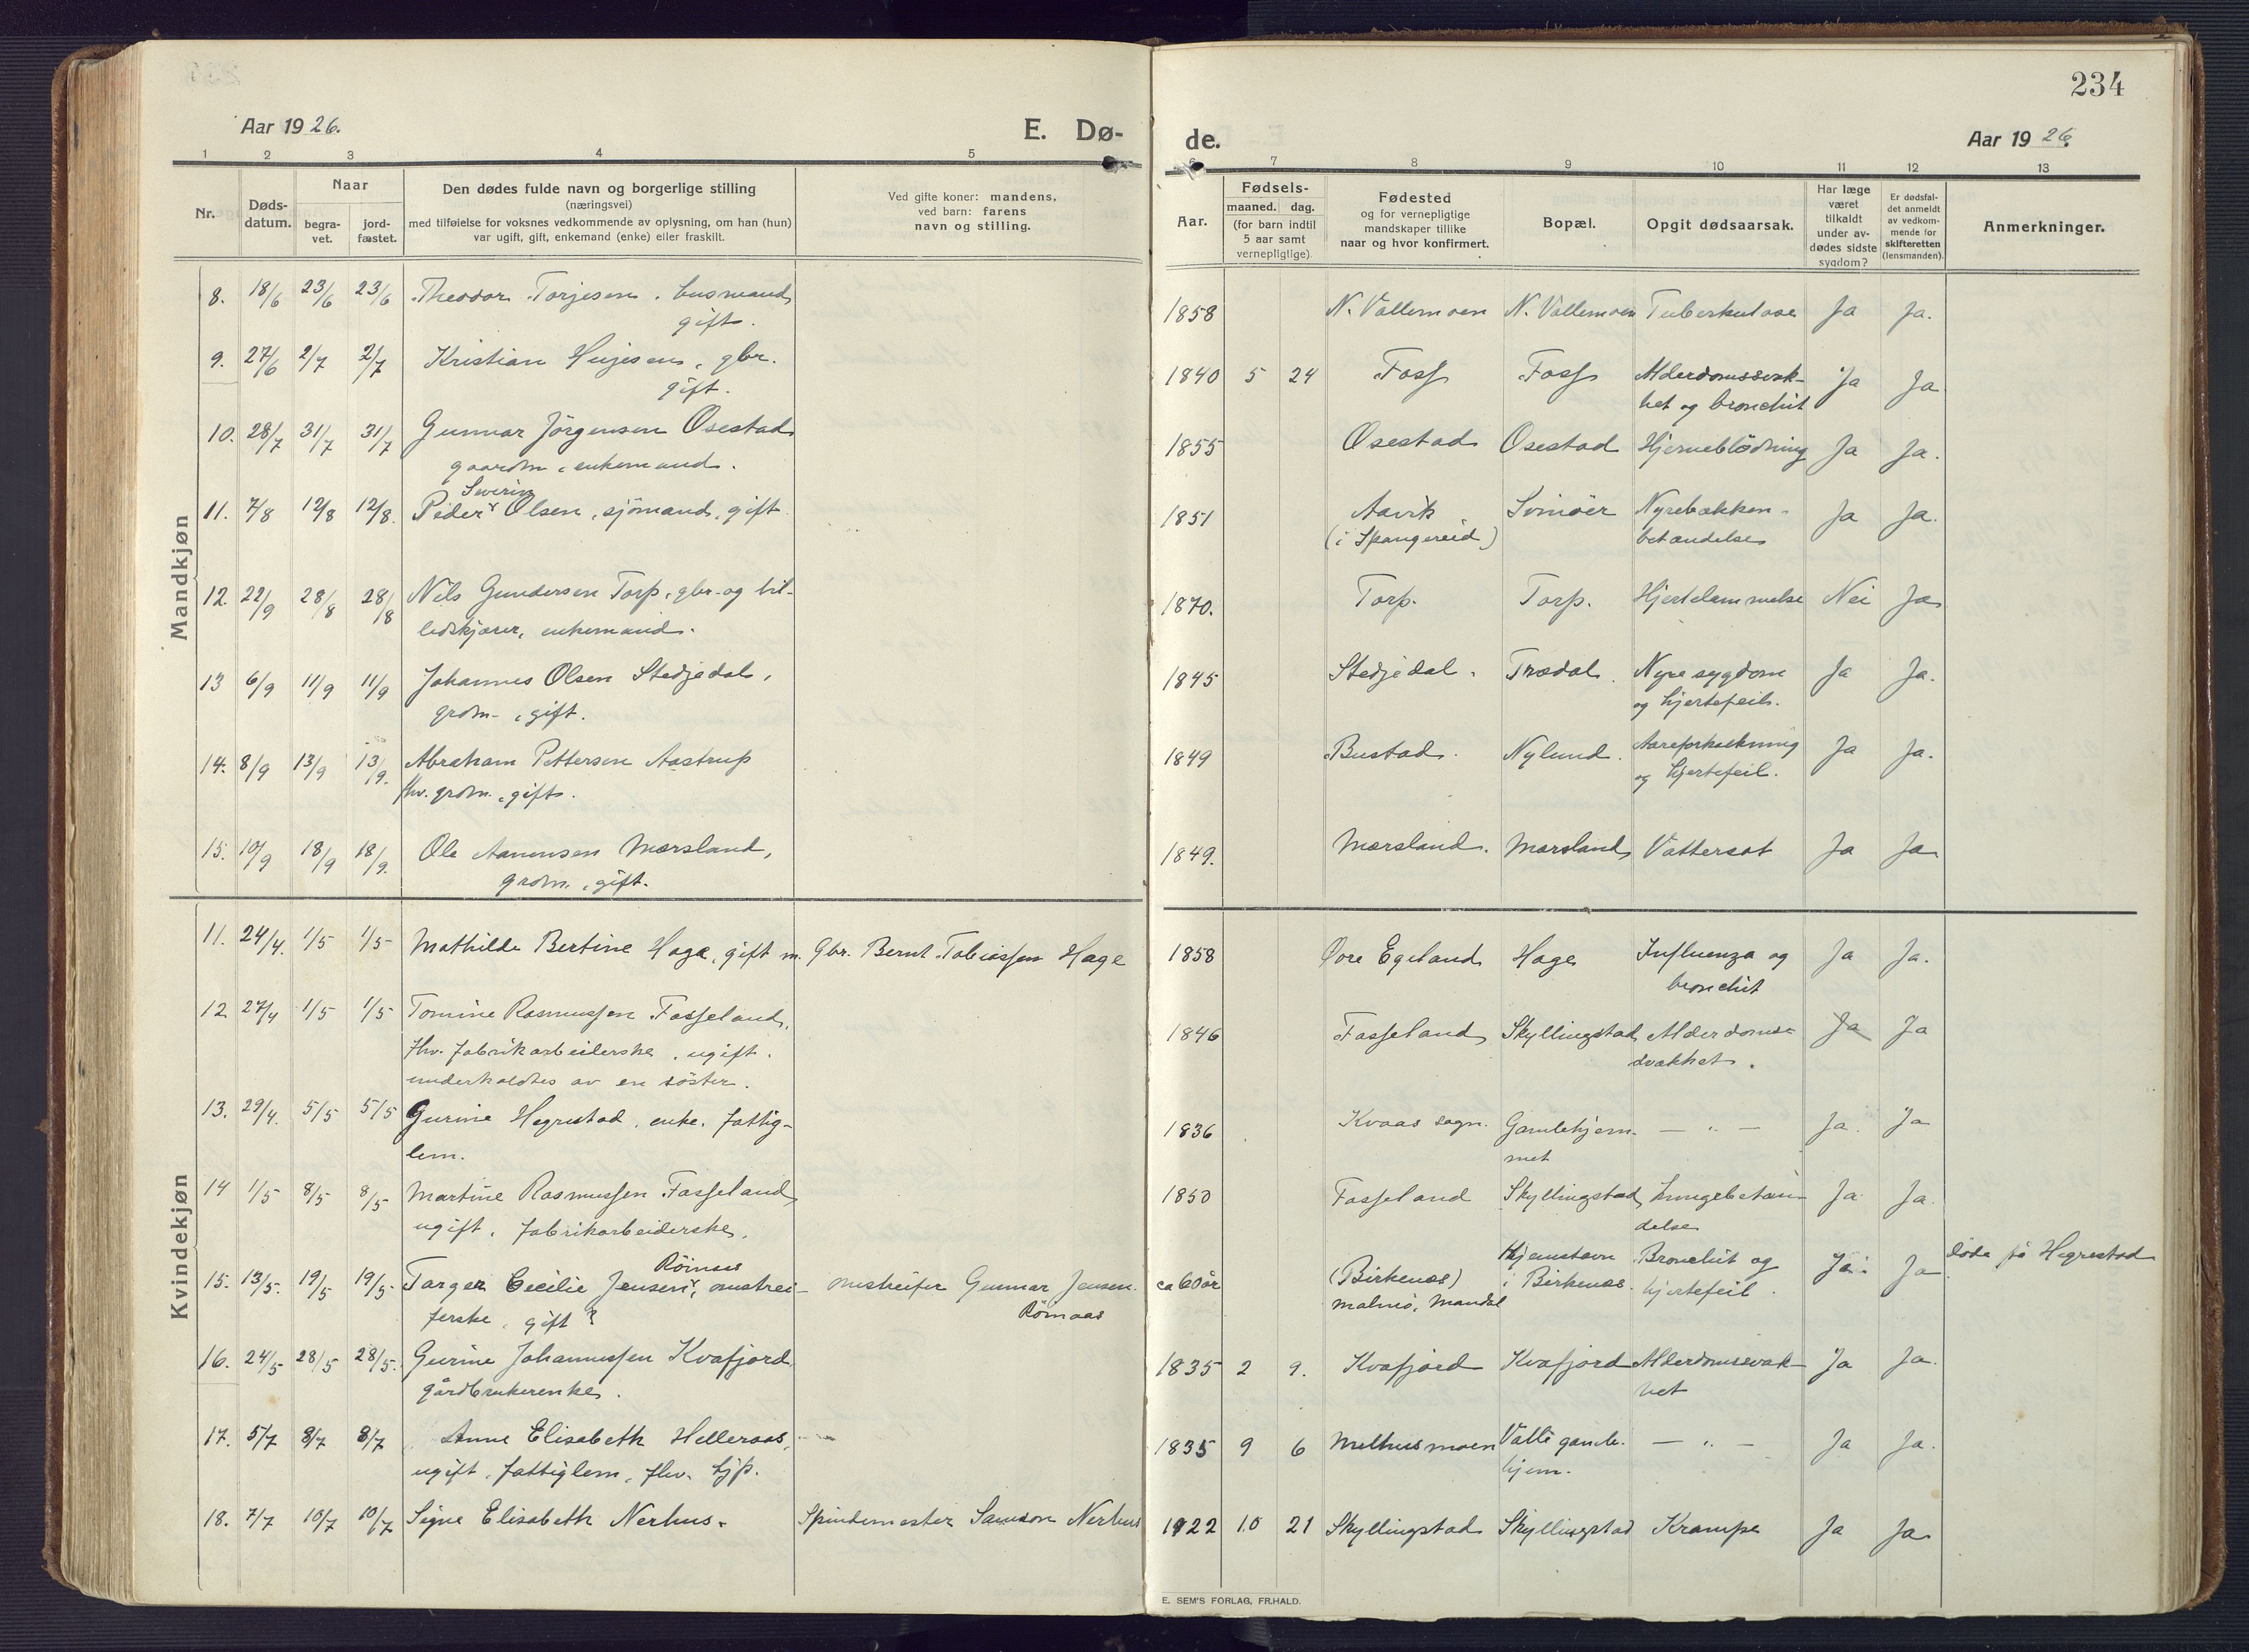 234
Aar 1926. E. Dø- de. Aar 1926.
1 2 3 4 5 6 7 8 9 10 11 12 13
Nr.
Døds-
datum.
Naar
begra-
vet.
jord-
fæstet.
Den dødes fulde navn og borgerlige stilling
(næringsvei)
med tilføielse for voksnes vedkommende av oplysning, om han (hun)
var ugift, gift, enkemand (enke) eller fraskilt.
Ved gifte koner: mandens,
ved barn: farens
navn og stilling.
Aar.
Fødsels-
maaned. dag.
(for barn indtil
5 aar samt
vernepligtige).
Fødested
og for vernepligtige
mandskaper tillike
naar og hvor konfirmert.
Bopæl.
Opgit dødsaarsak.
Har læge
været
tilkaldt
under av-
dødes sidste
sygdom?
Er dødsfal-
det anmeldt
av vedkom-
mende for
skifteretten
(lensmanden).
Anmerkninger.
Mandkjøn
8. 18/6 23/6 23/6 Theodor Torjesen, husmand, 1858 N. Vallemoen N. Vallemoen Tuberkulose Ja Ja.
gift.
9. 27/6 2/7 2/7 Kristian Hujesen, gbr. 1840 5 24 Foss Foss Alderdomssvak- Ja Ja
gift. het og bronchit
10. 28/7 31/7 31/7 Gunnar Jörgensen Osestad 1855 Osestad Osestad Hjerneblödning Ja Ja.
gaardm., enkemand.
Severin
11. 7/8 12/8 12/8. Peder Olsen, sjömand, gift. 1851 Aavik Svinöer Nyrebækken- Ja Ja.
(i Spangereid) betændelse
12. 22/9 28/8 28/8 Nils Gundersen Torp, gbr. og bil- 1870. Torp. Torp. Hjertelammelse Nei Ja
ledskjærer, enkemand.
13 6/9 11/9 11/9 Johannes Olsen Stedjedal, 1845 Stedjedal. Trædal. Nyresygdom Ja Ja.
grdm., gift. og hjertefeil.
14. 8/9 13/9 13/9. Abraham Pettersen Aastrup 1849 Bustad. Nylund. Aareforkalkning Ja Ja.
fhv. grdm., gift. og hjertefeil.
15. 10/9 18/9 18/9. Ole Aanensen Mærsland, 1849. Mærsland. Mærsland Vattersot Ja Ja
grdm., gift.
Kvindekjøn
11. 24/4. 1/5 1/5 Mathilde Bertine Hage, gift m. Gbr. Bernt Tobiassen Hage 1858 Övre Egeland Hage Influenza og Ja Ja.
bronchit
12 27/4 1/5 1/5 Tomine Rasmussen Fasseland, 1846 Fasseland Skyllingstad Alderdoms- Ja Ja
fhv. fabrikarbeiderske, ugift. svakhet.
underholdtes av en söster.
13. 29/4. 5/5 5/5 Gurine Hegrestad, enke. fattig- 1836 Kvaas sogn. Gamlehjem- — „ — Ja. Ja
lem. met
14 1/5 8/5 8/5 Martine Rasmussen Fasseland, 1850 Fasseland Skyllingstad Lungebetæn- Ja Ja.
ugift. fabrikarbeiderske. delse
Röinaas
15. 13/5. 19/5 19/5 Targer Cecilie Jensen, omstrei- omstreifer Gunnar Jensen Röinaas ca 60 år (Birkenæs) Hjemstavn Bronchit og Ja. Ja döde på Hegrestad
ferske, gift? Malmö, Mandal i Birkenæs. hjertefeil.
16. 24/5 28/5 28/5. Gurine Johannessen Kvafjord 1835 2 9. Kvafjord Kvafjord Alderdomssvak- Ja Ja.
gårdbrukerenke. het
17. 5/7 8/7 8/7 Anne Elisabeth Helleraas, 1835 9 6 Melhusmoen Valle gamle- — „ — Ja Ja.
ugift, fattiglem, fhv. tjp. hjem.
18. 7/7 10/7 10/7 Signe Elisabeth Nerhus. Spindemester Samson Nerhus 1922 10 21 Skyllingstad Skyllingstad Krampe Ja Ja.
E. SEM'S FORLAG, FR.HALD.